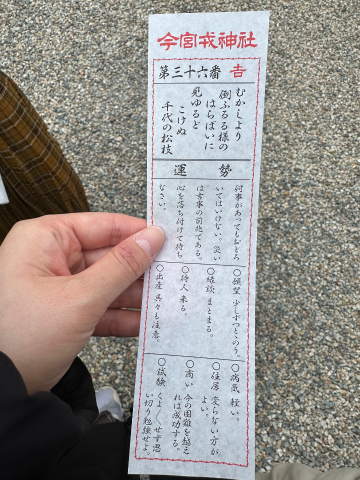 今宮戎神社
第三十六番 吉
むかしより
倒ふるる様の
はらばいに
見ゆるど
こけぬ
千代の松枝
運勢
何事があってもおどろ
いてはいけない。災い
は吉事の前兆である。
心を落ち付けて待ち
なさい。
○願望 少しずつとゝのう。
○縁談 まとまる。
○待人 来る。
○出産 呉々も注意。
○病気 軽い。
○住居 変らない方が
よい。
○商い 今の困難を越え
れば成功する。
○試験 くよ〳〵せず思
い切り勉強せよ。